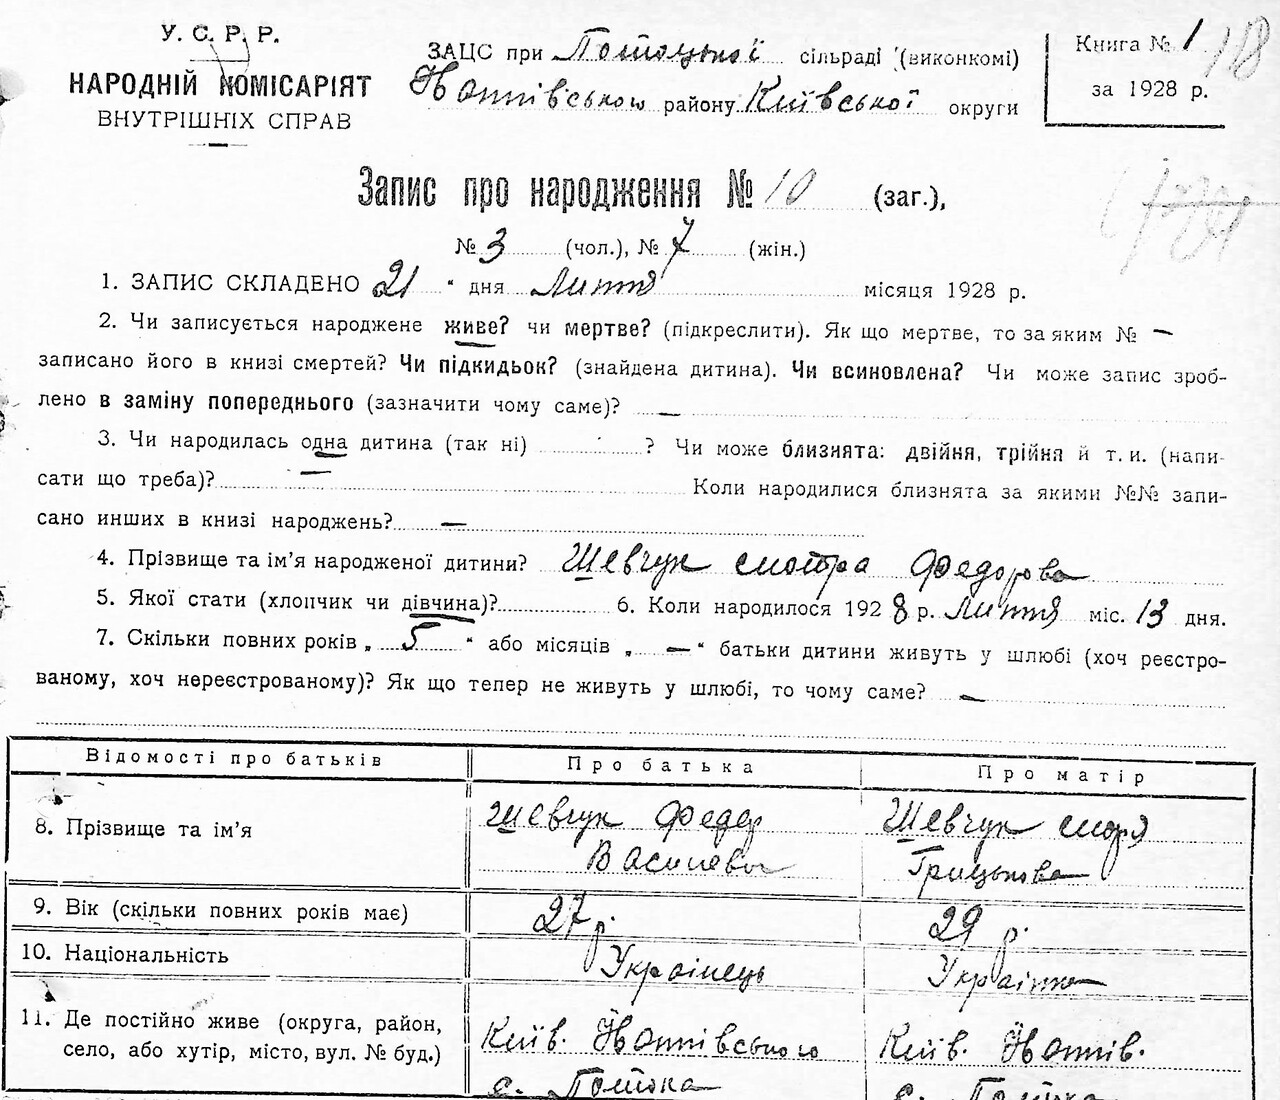 У. С. Р. Р.
НАРОДНІЙ КОМІСАРІЯТ
ВНУТРІШНІХ СПРАВ
ЗАЦС при Потоцької сільраді (виконкомі)
району Київської округи
Книга № 1
за 1928 р.
118
Запис про народження № 10 (заг.),
№ 3 (чол.), № 7 (жін.)
1. ЗАПИС СКЛАДЕНО 21 " дня Лиття місяця 1928 р.
2. Чи записується народжене живе? чи мертве? (підкреслити). Як що мертве, то за яким № —
записано його в книзі смертей? Чи підкидьок? (знайдена дитина). Чи всиновлена? Чи може запис зроб-
лено в заміну попереднього (зазначити чому саме)? —
3. Чи народилась одна дитина (так ні) ? Чи може близнята: двійня, трійня й т. и. (напи-
сати що треба)? — Коли народилися близнята за якими №№ запи-
сано инших в книзі народжень? —
4. Прізвище та ім'я народженої дитини? Шевчук Федорова
5. Якої стати (хлопчик чи дівчина)? 6. Коли народилося 1928 р. Лиття міс. 13 дня.
7. Скільки повних років „ 5 " або місяців „ — " батьки дитини живуть у шлюбі (хоч реєстро-
ваному, хоч нереєстрованому)? Як що тепер не живуть у шлюбі, то чому саме? —
Відомості про батьків Про батька Про матір
8. Прізвище та ім'я Шевчук Федор Шевчук Марія
Грицькова
9. Вік (скільки повних років має) 27 р. 29 р.
10. Національність Українець Українка
11. Де постійно живе (округа, район, село, або хутір, місто, вул. № буд.) Київ. Київ.
с. Потока с. Потока